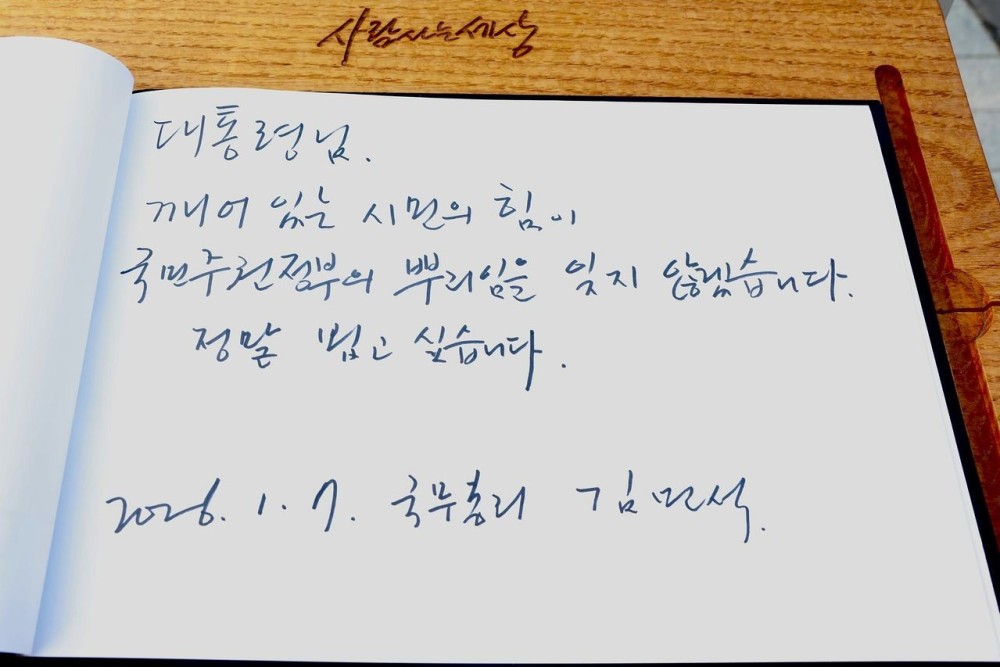 사람사는세상
대통령님.
깨어 있는 시민의 힘이
국민주권정부의 뿌리임을 잊지 않겠습니다.
정말 뵙고 싶습니다.
2026. 1. 7. 국무총리 김민석.